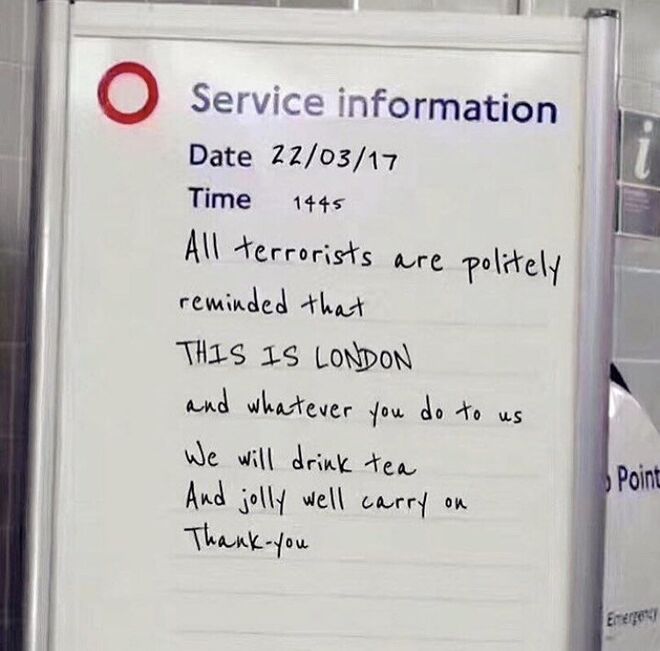 Service information
Date 22/03/17
Time 1445
All terrorists are politely
reminded that
THIS IS LONDON
and whatever you do to us
We will drink tea
And jolly well carry on
Thank-you
i
Point
Emergency